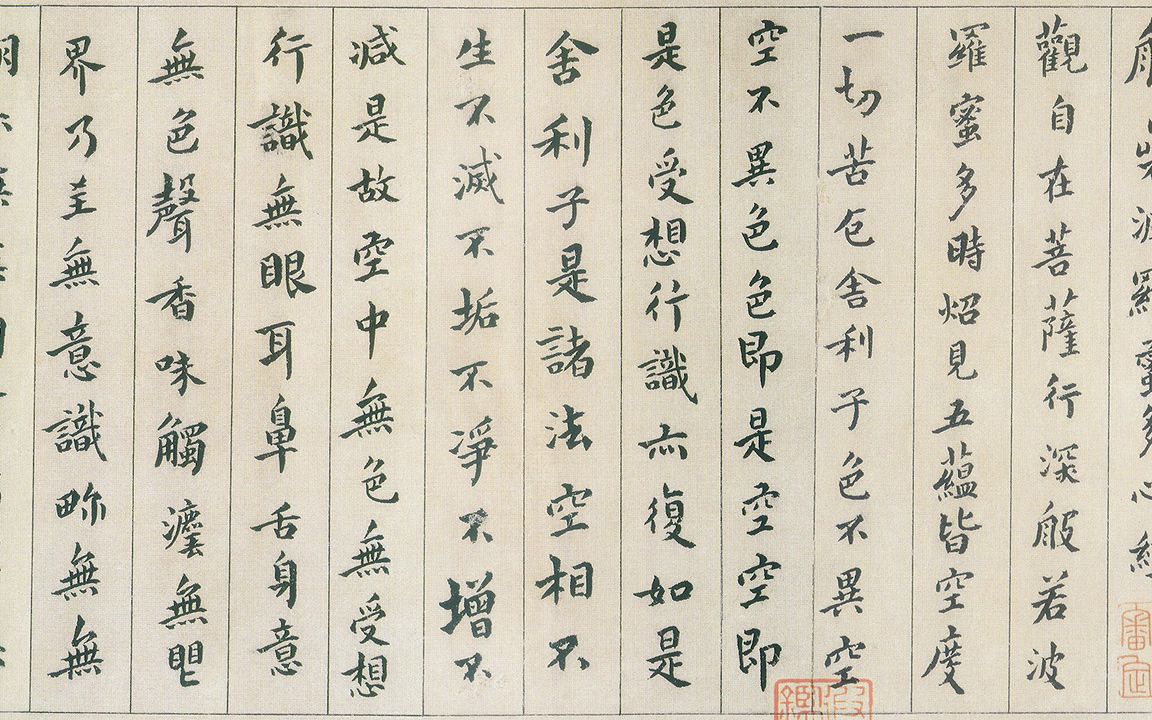 般若波羅蜜多心經
觀自在菩薩行深般若波
羅蜜多時炤見五蘊皆空度
一切苦厄舍利子色不異空
空不異色色即是空空即
是色受想行識亦復如是
舍利子是諸法空相不
生不滅不垢不淨不增不
減是故空中無色無受想
行識無眼耳鼻舌身意
無色聲香味觸灋無眼
界乃至無意識界無無